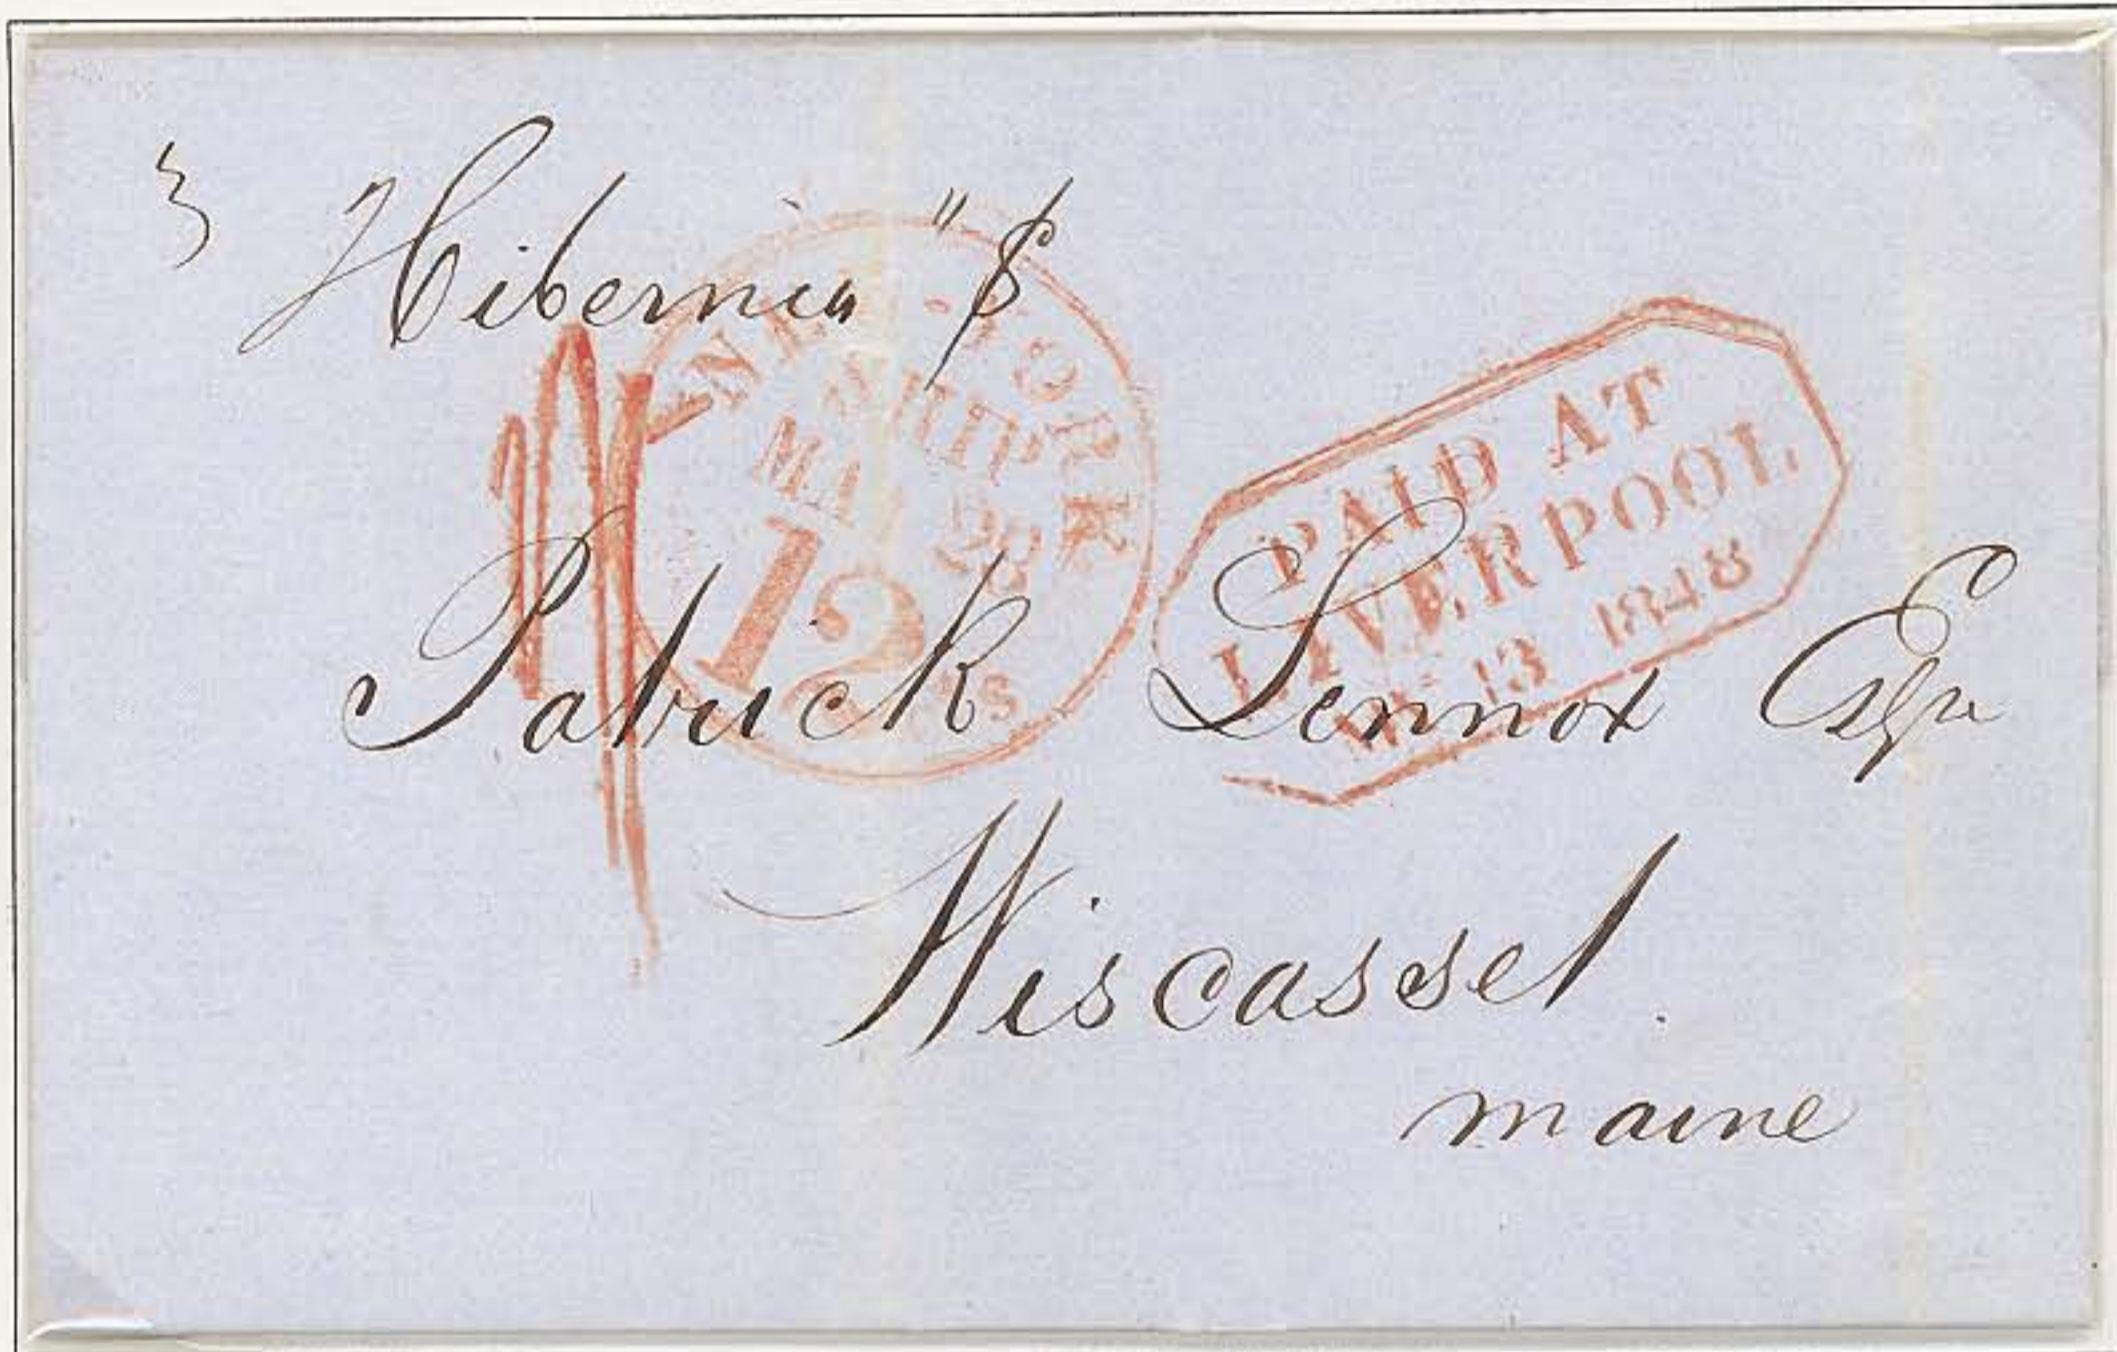 Hibernia " $
NEW YORK
SHIP
MAY 28
12 cts
PAID AT
LIVERPOOL
13 1848
Patrick Lennox Esqre
Wiscasset.
maine